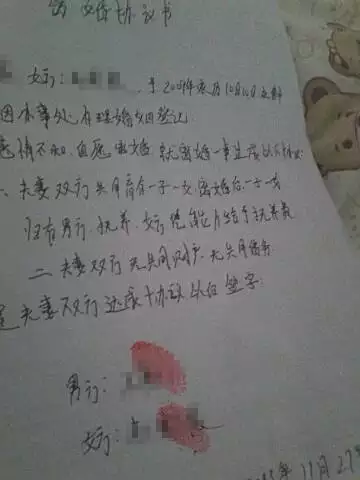 离婚协议书
女方：　于2009年农历10月10日在
因办事处办理婚姻登记
感情不和，自愿离婚，就离婚一事达成以下协议：
一、夫妻双方共同育有一子一女，离婚后一子一女
归有男行抚养，女方尽能力给予抚养费
二、夫妻双方无共同财产，无共同债务
夫妻双方达成十协议以后签字：
男行：
女方：
年11月27